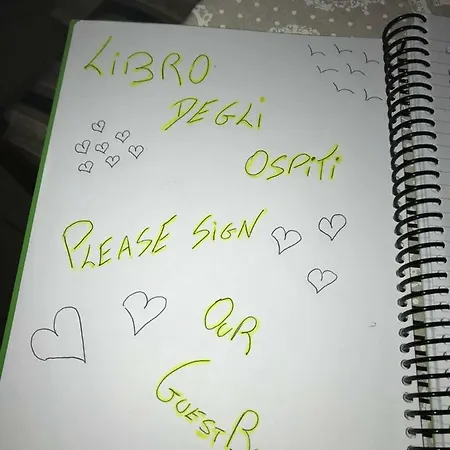 LiBRO
DEGLi
OSPiTi
PLEASE SiGN
OUR
GUESTB